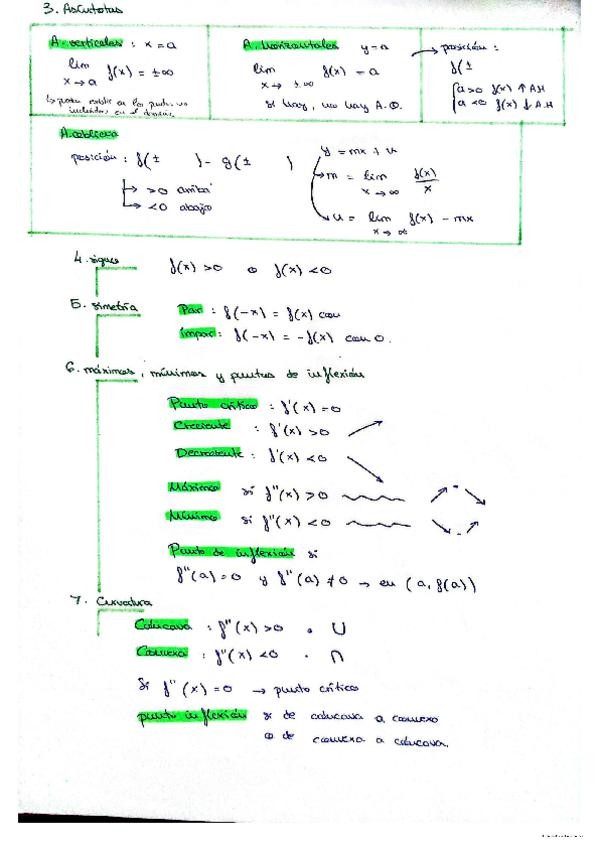 3. Asíntotas
A. verticales : x = a
lim f(x) = ±∞
x → a
↳ pueden existir en los puntos no
incluidos en el dominio
A. Horizontales y = a
lim f(x) = a
x → ±∞
si hay, no hay A.O.
→ posición :
f(±
a>0 f(x) ↑ A.H
a<0 f(x) ↓ A.H
A. oblicua
posición : f(± ) - g(± )
→ >0 arriba
→ <0 abajo
y = mx + n
m = lim f(x)/x
x → ∞
n = lim f(x) - mx
x → ∞
4. signo f(x) >0 o f(x) <0
5. simetría Par : f(-x) = f(x) con
Impar : f(-x) = -f(x) con O.
6. máximos, mínimos y puntos de inflexión
Punto crítico : f'(x) = 0
Creciente : f'(x) >0
Decreciente : f'(x) <0
Máximo si f''(x) >0
Mínimo si f''(x) <0
Punto de inflexión si
f''(a) = 0 y f'''(a) ≠ 0 → en (a, f(a))
7. Curvadura
Concava : f''(x) >0 • ∪
Convexa : f''(x) <0 • ∩
Si f''(x) = 0 → punto crítico
punto inflexión si de concava a convexo
o de convexa a concava.